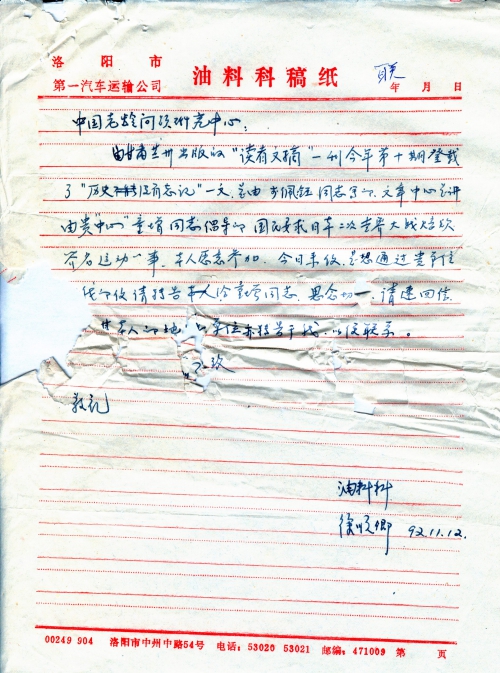 洛阳市
第一汽车运输公司
油料科稿纸
年 月 日
中国老龄问题研究中心：
由甘肃兰州出版的“读者文摘”一刊今年第十期登载
了“历史没有忘记”一文，是由 佩钰同志写的，文章中心是讲
由贵“中心”童增同志倡导的国民要求日本二次世界大战赔款
签名运动一事，本人愿意参加，今日来信，是想通过贵单位
请转告 童增同志，思念切一，请速回信
本人的地 单位 转告于我，以便联系。
致
敬礼
油料科
徐顺卿 92.11.12.
00249 904 洛阳市中州中路54号 电话：53020 53021 邮编：471009 第 页